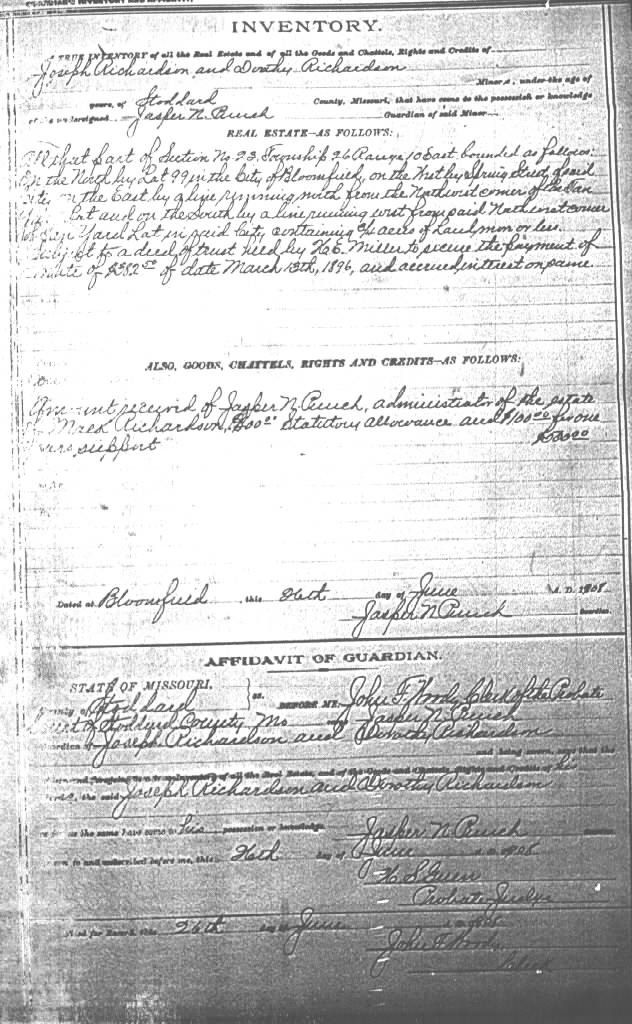 INVENTORY.
A TRUE INVENTORY of all the Real Estate and of all the Goods and Chattels, Rights and Credits of
Joseph Richardson and Dorothy Richardson
Minors, under the age of
years, of Stoddard County, Missouri, that have come to the possession or knowledge
undersigned Jasper N. Punch Guardian of said Minor
REAL ESTATE—AS FOLLOWS:
that part of Section No 23, Township 26 Range 10 East, bounded as follows:
On the North by Lot 99 in the City of Bloomfield, on the West by Street of said
City, on the East by a line running north from the Northwest corner of the
Lot and on the South by a line running west from said Northwest corner
Yard Lot in said City, containing acres of Land, mon or less.
Subject to a deed of trust held by H. E. Miller to secure the payment of
note of of date March 13th, 1896, and accrued interest on same
ALSO, GOODS, CHATTELS, RIGHTS AND CREDITS—AS FOLLOWS:
Amount received of Jasper N. Punch, administrator of the estate
Richardson, Statutory allowance and $100.00 for one
years support
Dated at Bloomfield, this 26th day of June A. D. 1908
Jasper N Punch
Guardian.
AFFIDAVIT OF GUARDIAN.
STATE OF MISSOURI,
County of Stoddard ss. BEFORE ME, John F. Woody Clerk of the Probate
Court of Stoddard County Mo Jasper N. Punch
Guardian of Joseph Richardson and Dorothy Richardson
and being sworn, says that the
foregoing is a true Inventory of all the Real Estate, and of the Goods and Chattels, Rights and Credits of
the said Joseph Richardson and Dorothy Richardson
so far as the same have come to his possession or knowledge. Jasper N. Punch
Sworn to and subscribed before me, this 26th day of June A. D. 1908
Probate Judge
Filed for Record, this 26th day of June A. D. 1908
John F. Woody
Clerk